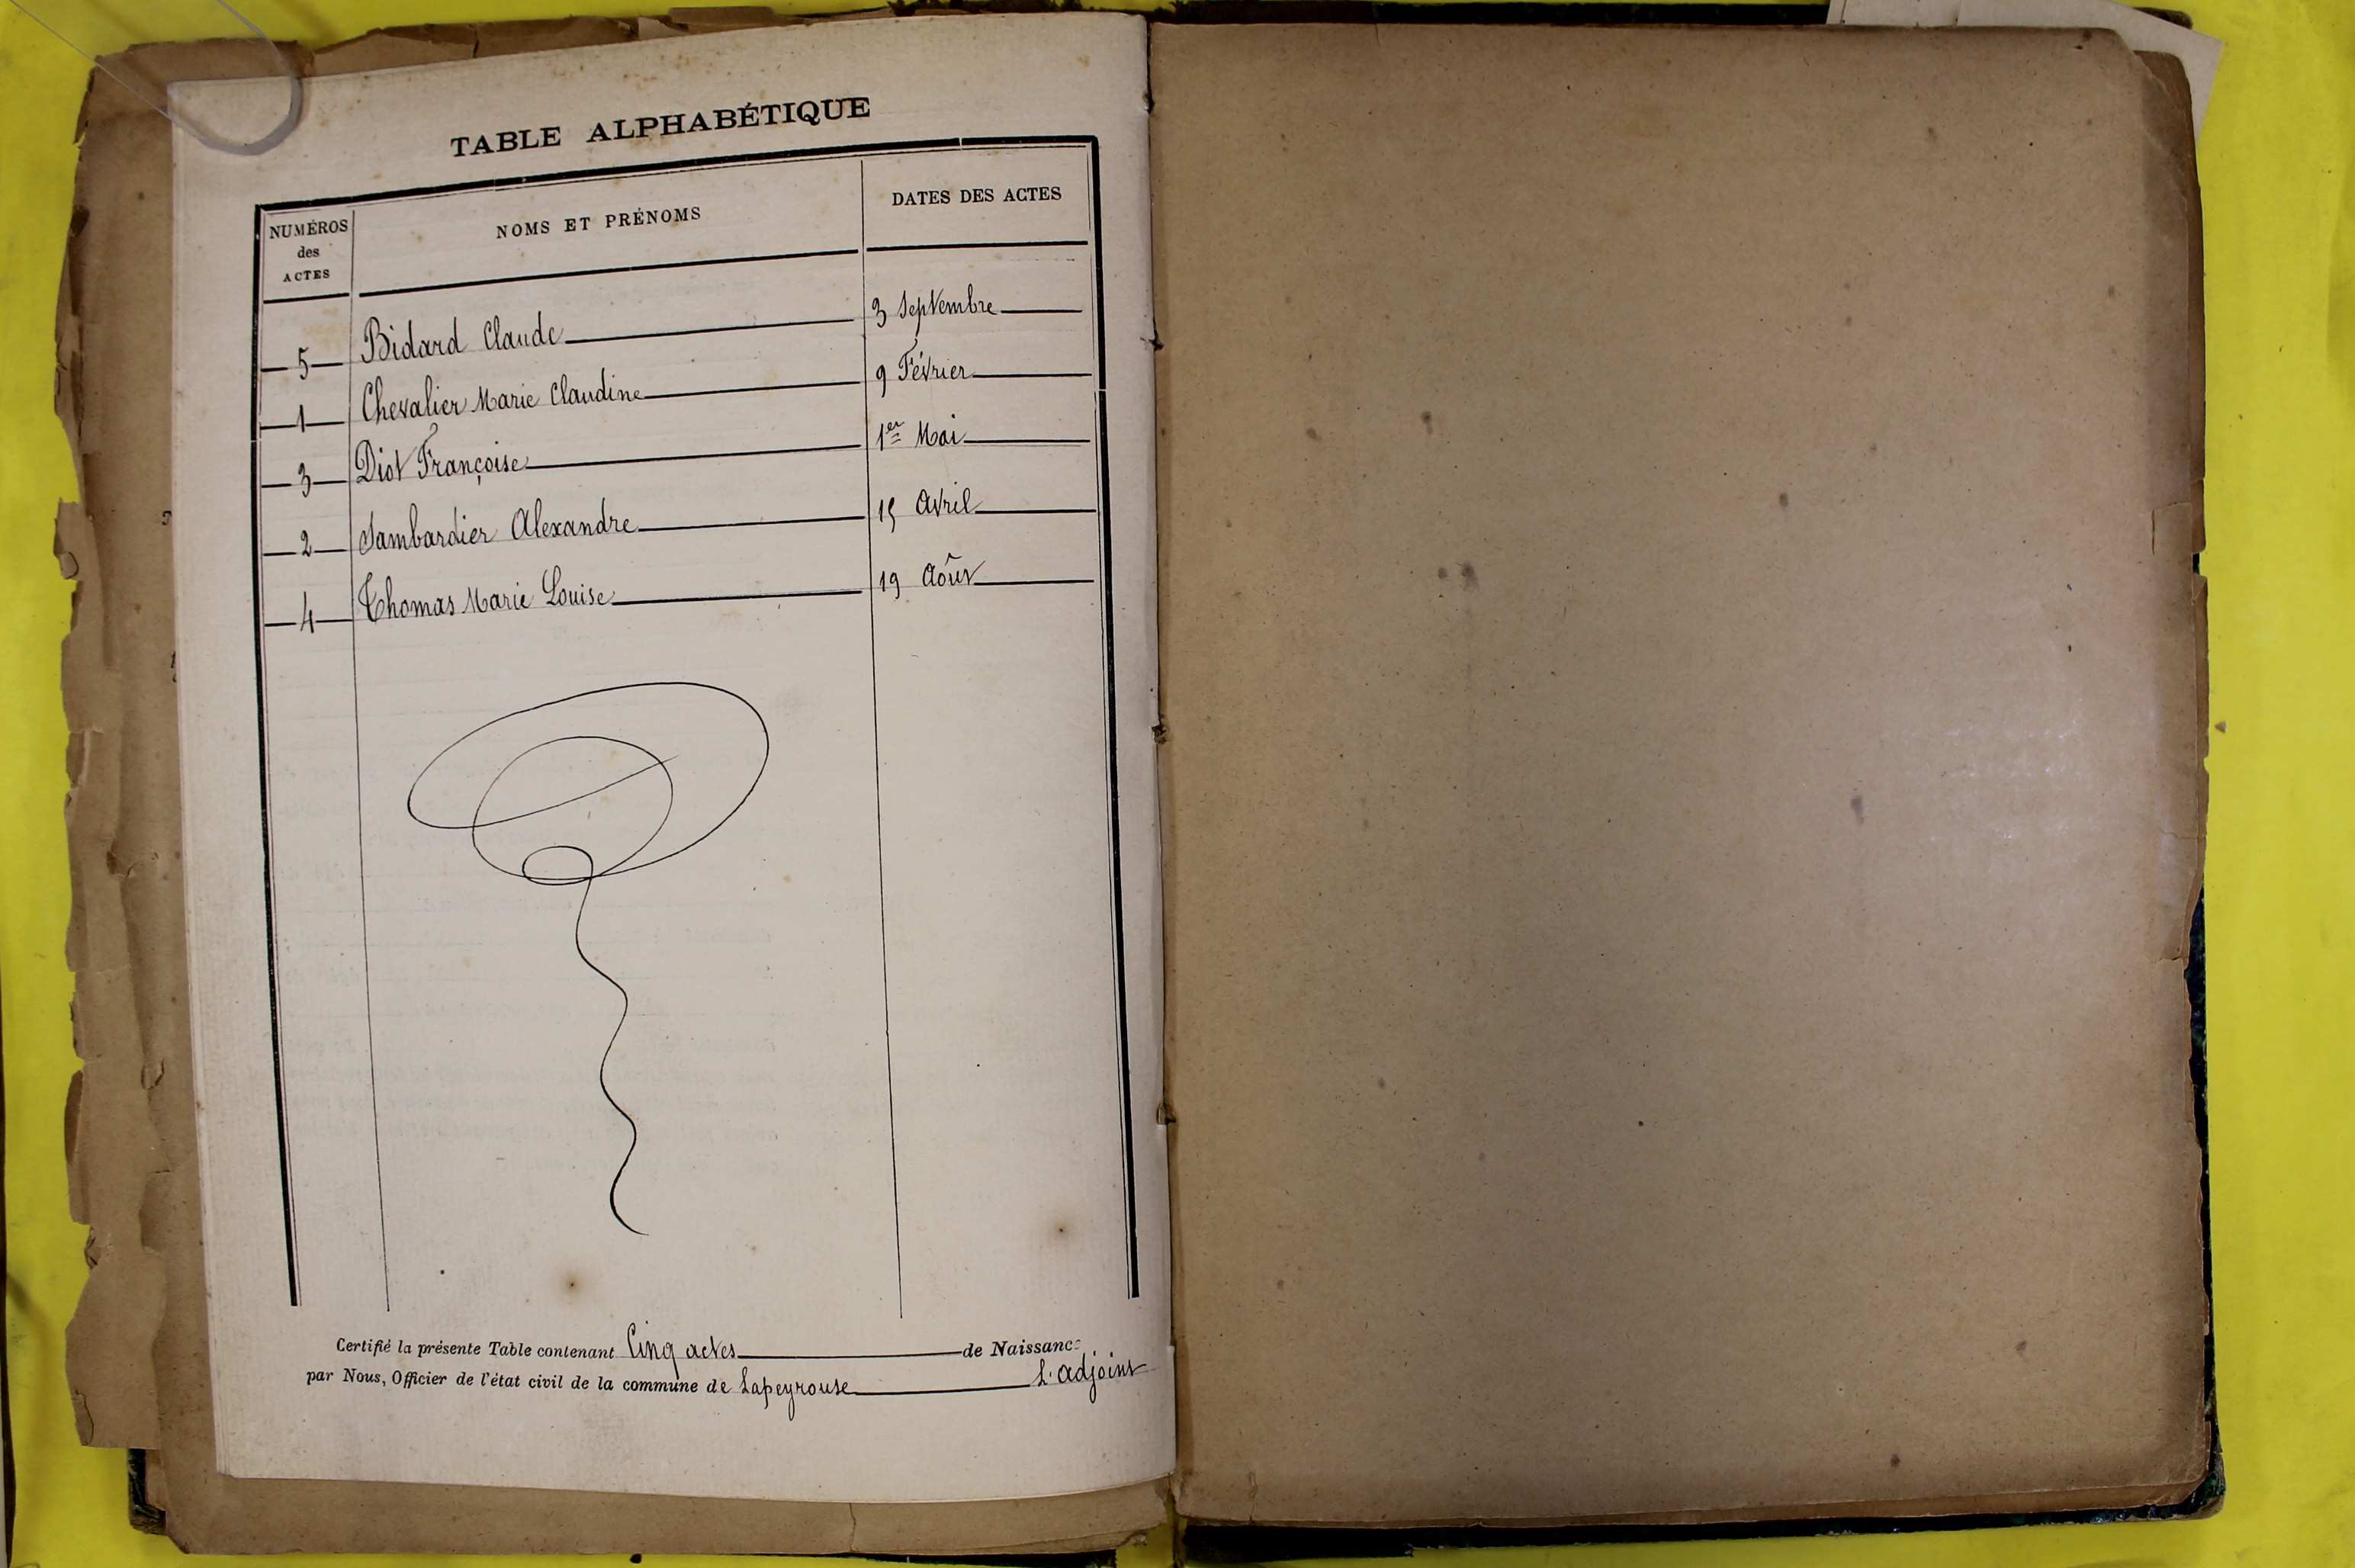 TABLE ALPHABÉTIQUE
NUMÉROS des ACTES NOMS ET PRÉNOMS DATES DES ACTES
5 Bidard Claude 3 Septembre
1 Chevalier Marie Claudine 9 Février
3 Diot Françoise 1er Mai
2 Sambardier Alexandre 15 Avril
4 Thomas Marie Louise 19 Août
Certifié la présente Table contenant Cinq actes de Naissance
par Nous, Officier de l'état civil de la commune de Lapeyrouse L'adjoint